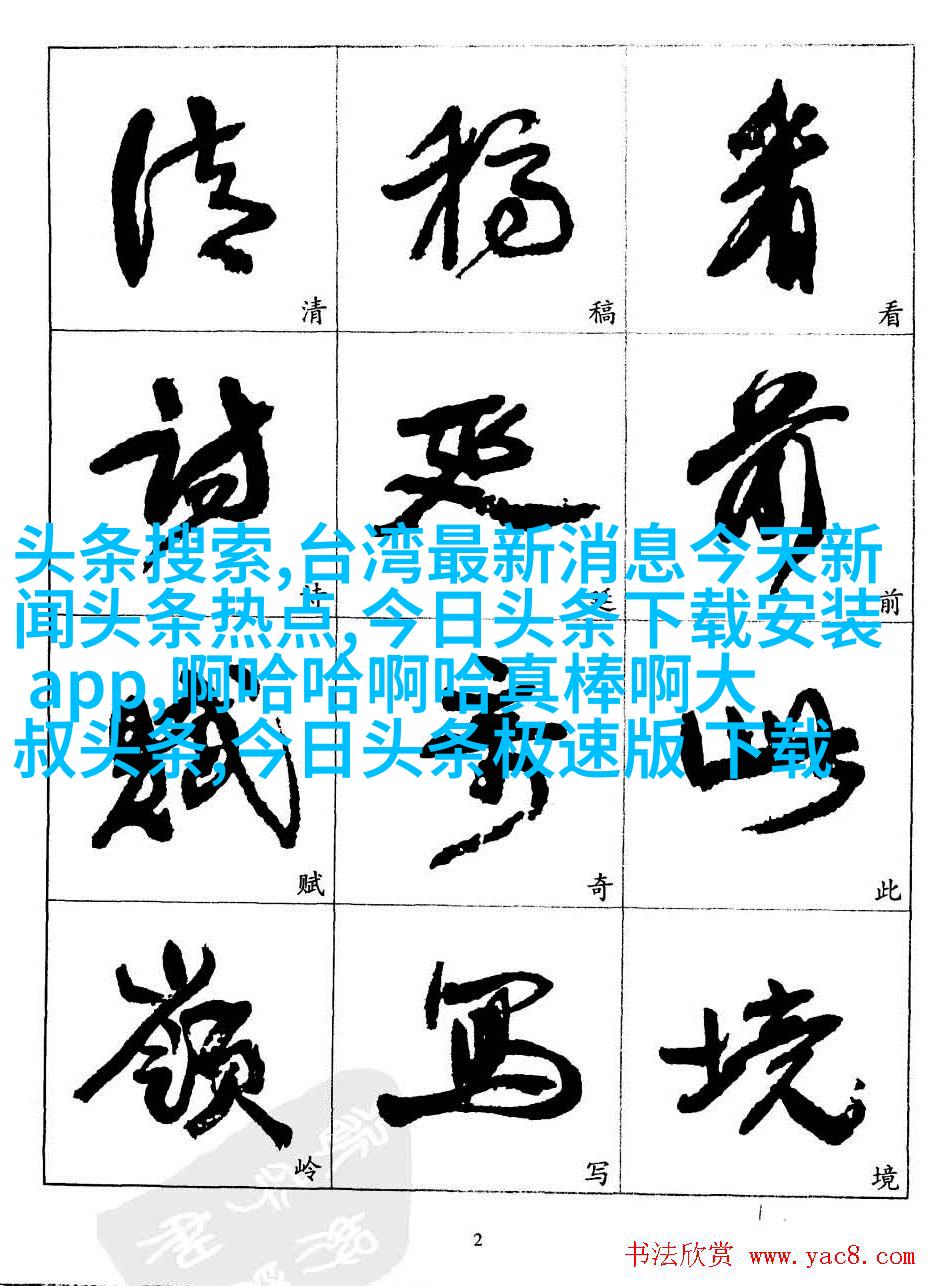 清 稿 看
清 稿 看
诗 延 前
诗 延 前
头条搜索,台湾最新消息今天新
闻头条热点,今日头条下载安装
app,啊哈哈啊哈真棒啊大
叔头条,今日头条极速版 下载
赋 奇 此
赋 奇 此
嶺 写 境
岭 写 境
2
书法欣赏 www.yac8.com